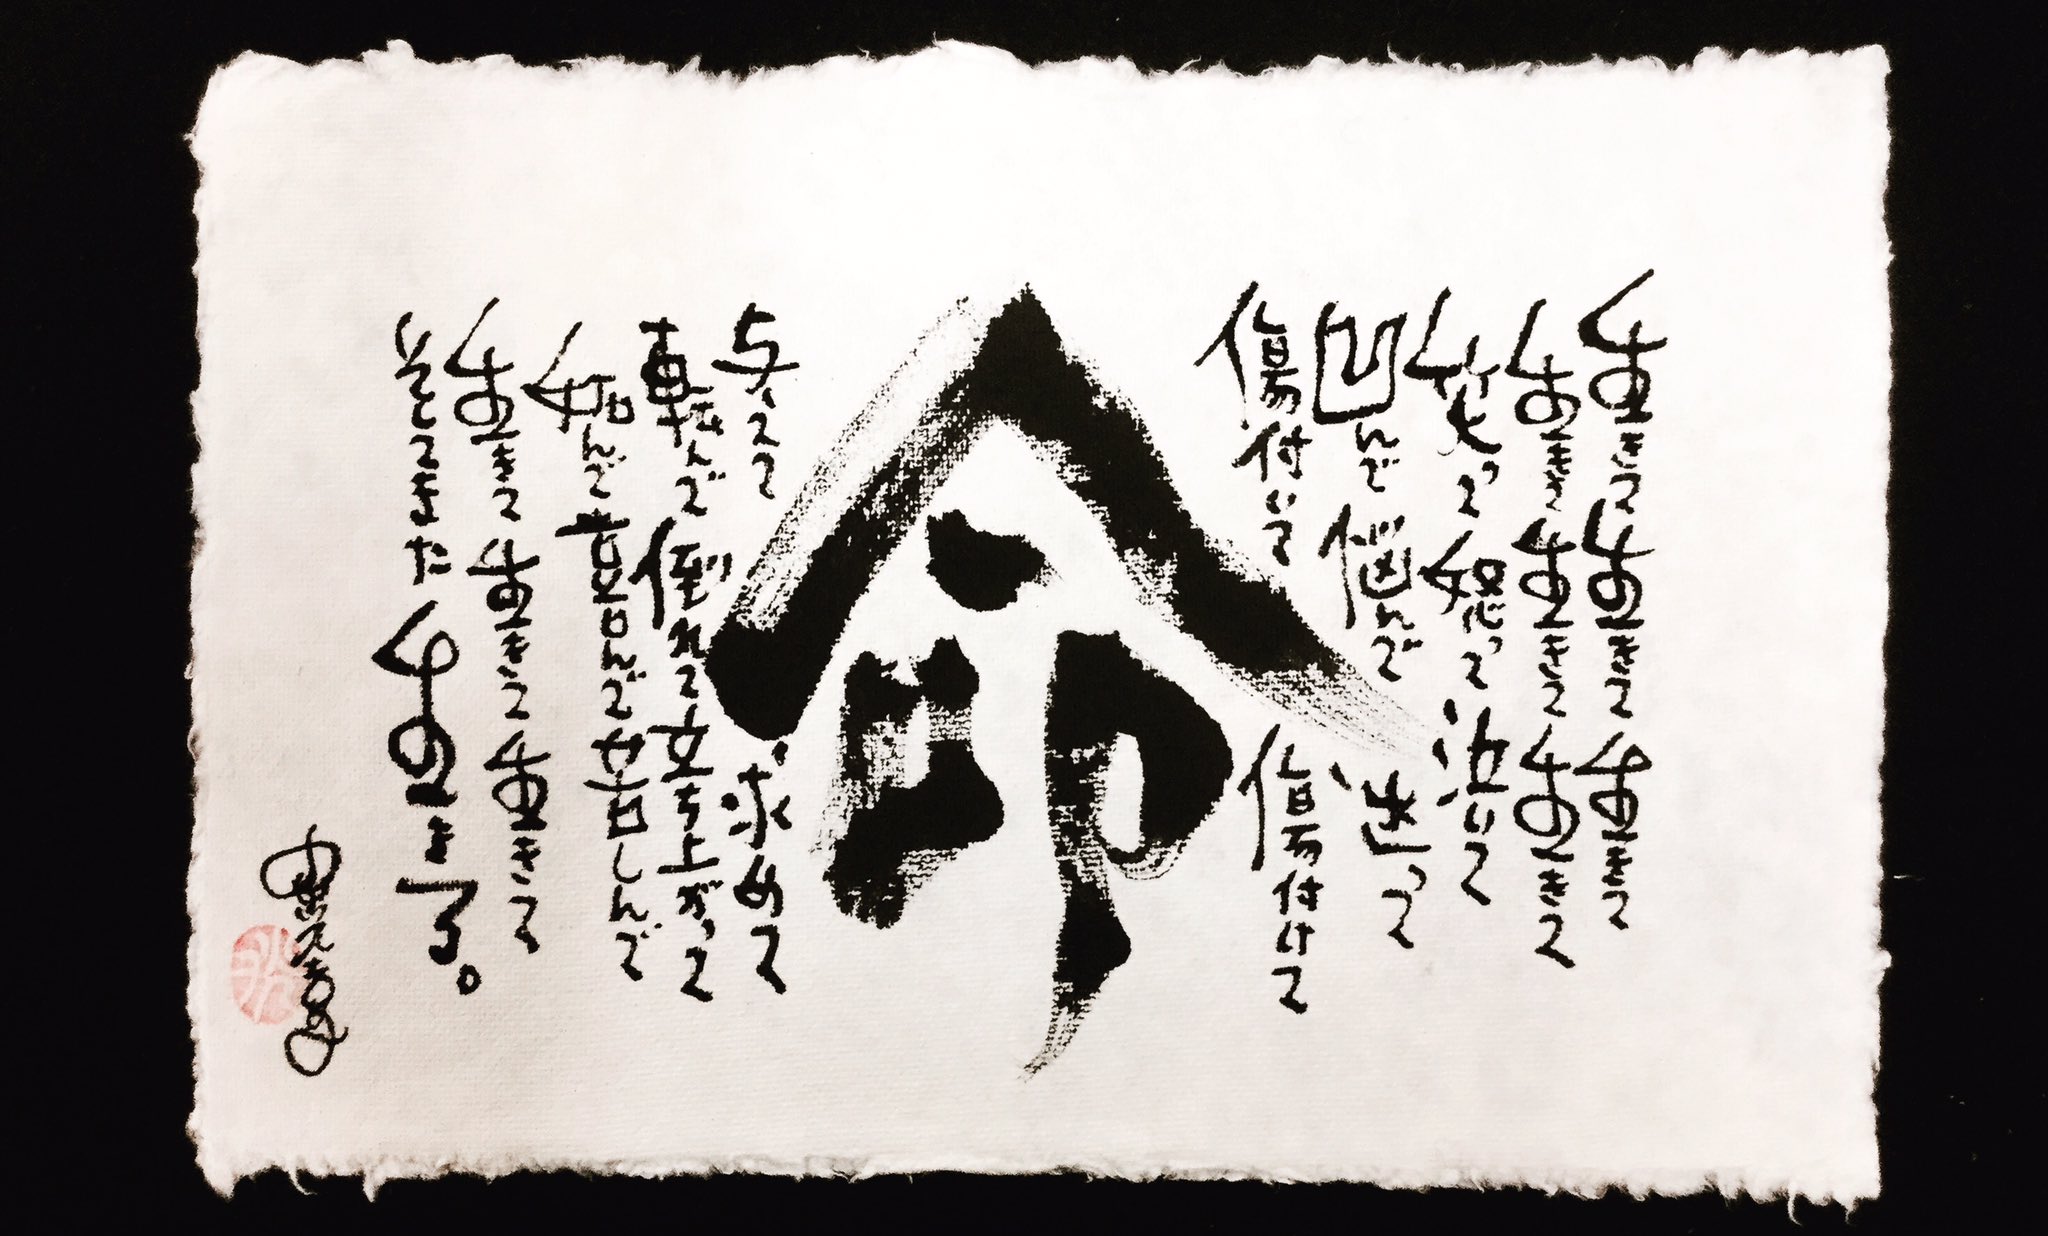 生きて生きて生きて
生きて生きて生きて
笑って怒って泣いて
凹んで悩んで迷って
傷付いて傷付けて
命
与えて求めて
転んで倒れて立ち上がって
妬んで喜んで苦しんで
生きて生きて生きて
そしてまた生きる。